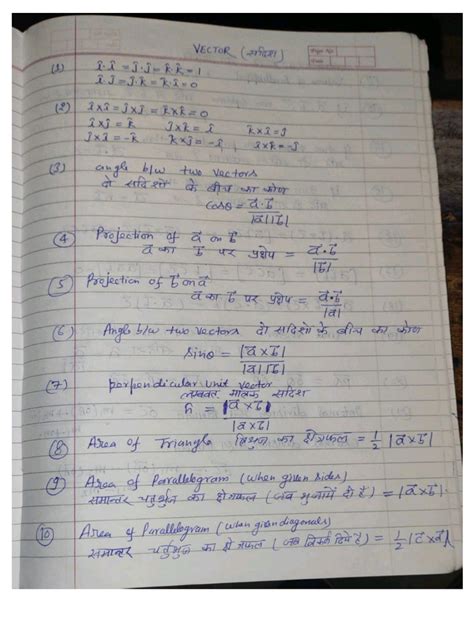 VECTOR (सदिश)
(1) î·î = ĵ·ĵ = k̂·k̂ = 1
î·ĵ = ĵ·k̂ = k̂·î = 0
(2) î×î = ĵ×ĵ = k̂×k̂ = 0
î×ĵ = k̂ ĵ×k̂ = î k̂×î = ĵ
ĵ×î = -k̂ k̂×ĵ = -î î×k̂ = -ĵ
(3) angle b/w two vectors
दो सदिशों के बीच का कोण
cosθ = a⃗·b⃗ / |a||b|
(4) Projection of a⃗ on b⃗
a⃗ का b⃗ पर प्रक्षेप = a⃗·b⃗ / |b|
(5) Projection of b⃗ on a⃗
a⃗ का b⃗ पर प्रक्षेप = a⃗·b⃗ / |a|
(6) Angle b/w two vectors दो सदिशों के बीच का कोण
sinθ = |a⃗×b⃗| / |a||b|
(7) perpendicular unit vector
लम्बवत मात्रक सदिश
n̂ = |a⃗×b⃗| / |a×b|
(8) Area of Triangle त्रिभुज का क्षेत्रफल = 1/2 |a⃗×b⃗|
(9) Area of Parallelogram (when given sides)
समान्तर चतुर्भुज का क्षेत्रफल (जब भुजायें दी है) = |a⃗×b⃗|
(10) Area of Parallelogram (when given diagonals)
समान्तर चतुर्भुज का क्षेत्रफल (जब विकर्ण दिये है) = 1/2 |c⃗×d⃗|